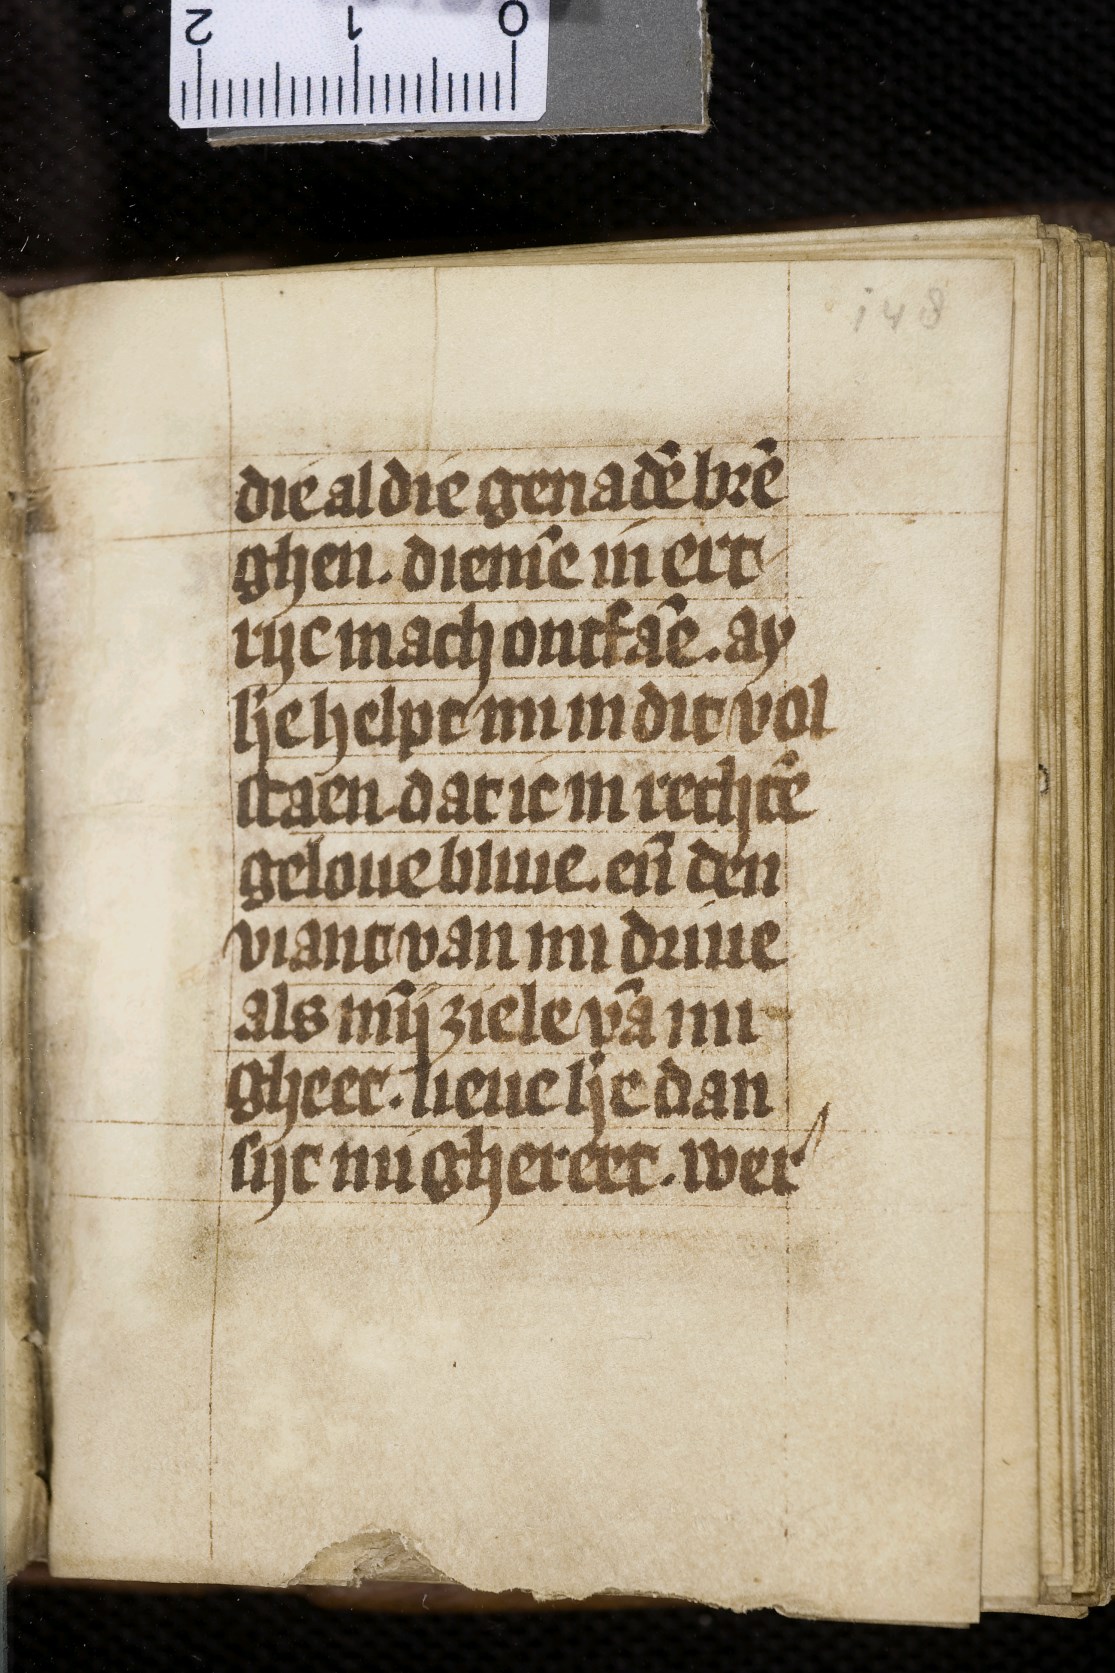 2 1 0
148
die al die genadē brē
ghen. diemē in ert
rijc mach ontfāe. ay
lʒe helpt mi in dit vol
staen dat ic in rechtē
geloue bliue. eñ den
viant van mi driue
als mīj ziele vā mi
gheet. lieue lʒe dan
sijt mi ghereet. wer